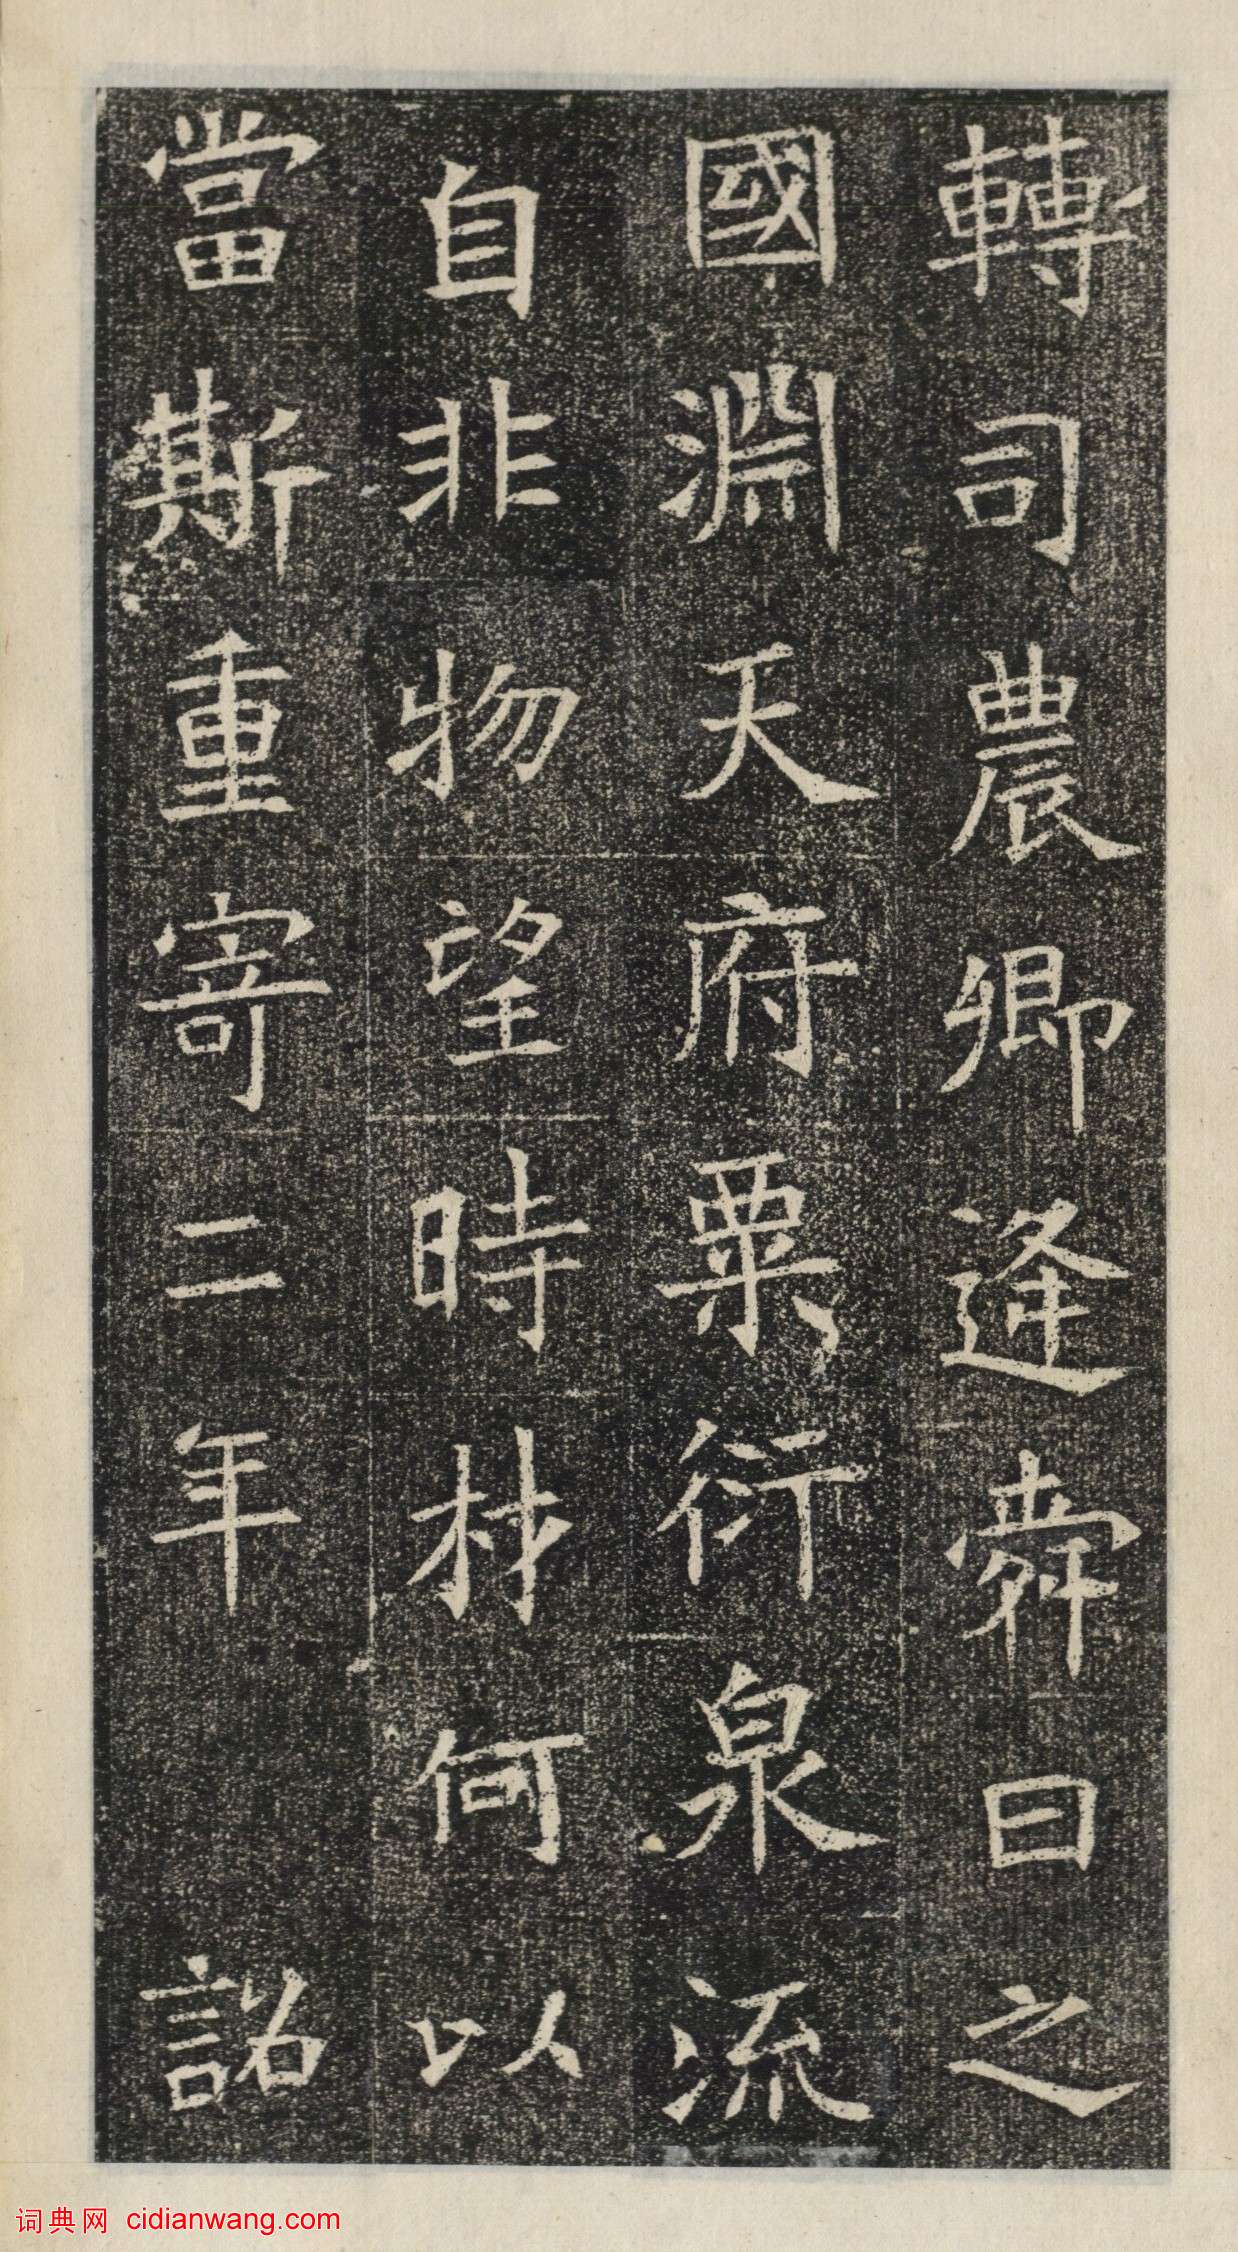 轉司農卿逢舜日之
國淵天府粟衍泉流
自非物望時材何以
當斯重寄二年 詔
词典网 cidianwang.com